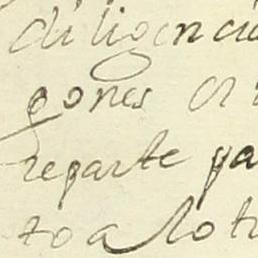 diligencia
gones
reparte pa
to a lo tr